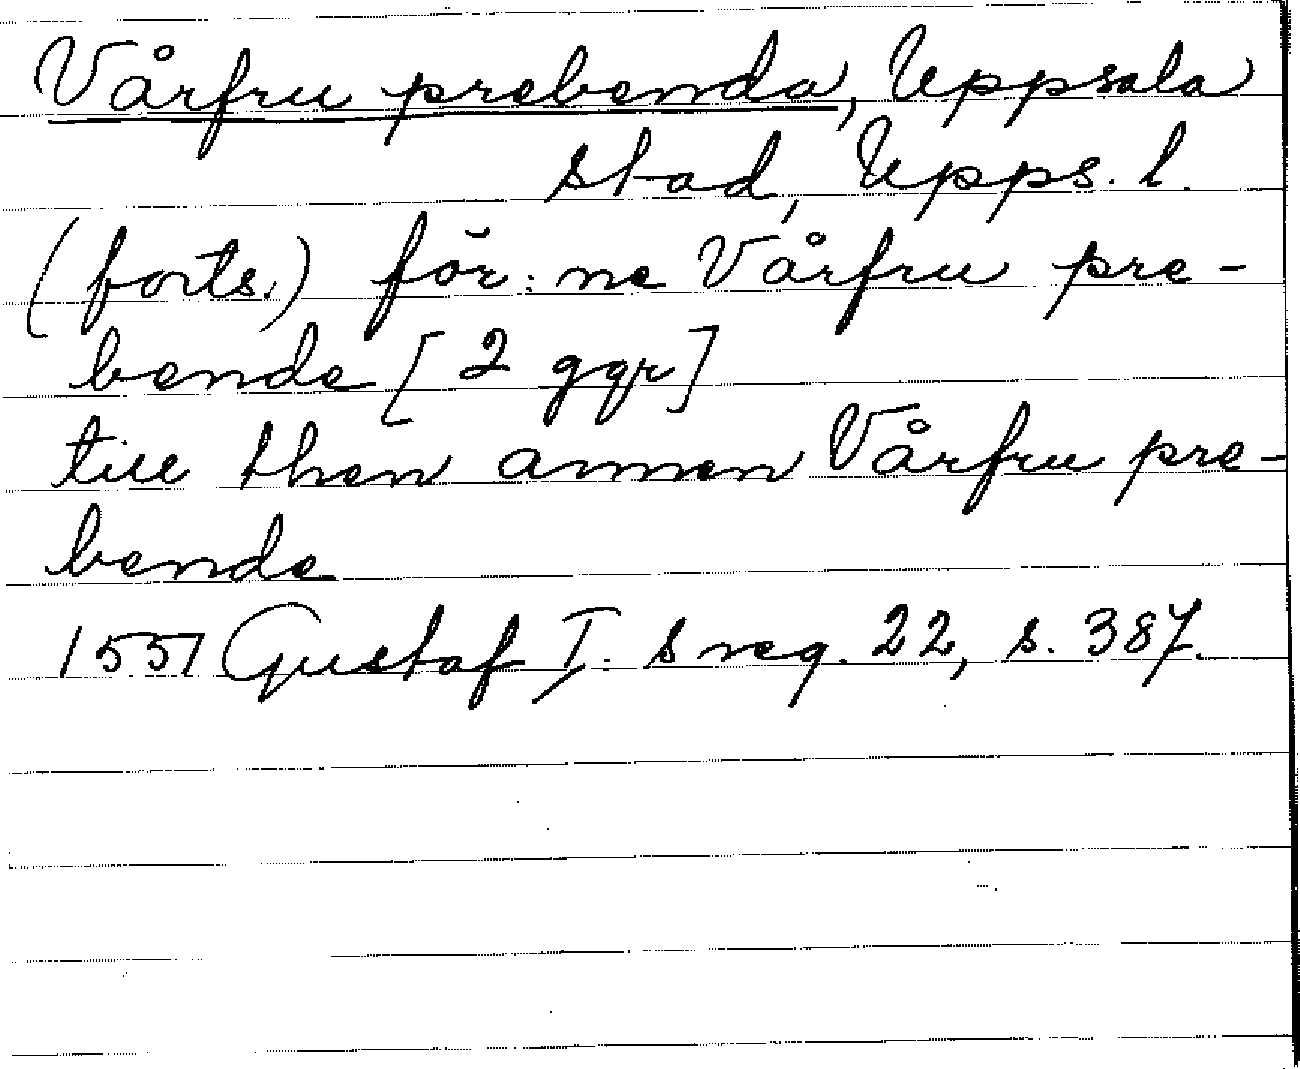 Vårfru prebenda, Uppsala
stad, Upps. l.
(forts.) för:ne Vårfru pre-
bende [2 ggr]
till then annen Vårfru pre-
bende
1557 Gustaf I:s reg. 22, s. 387.